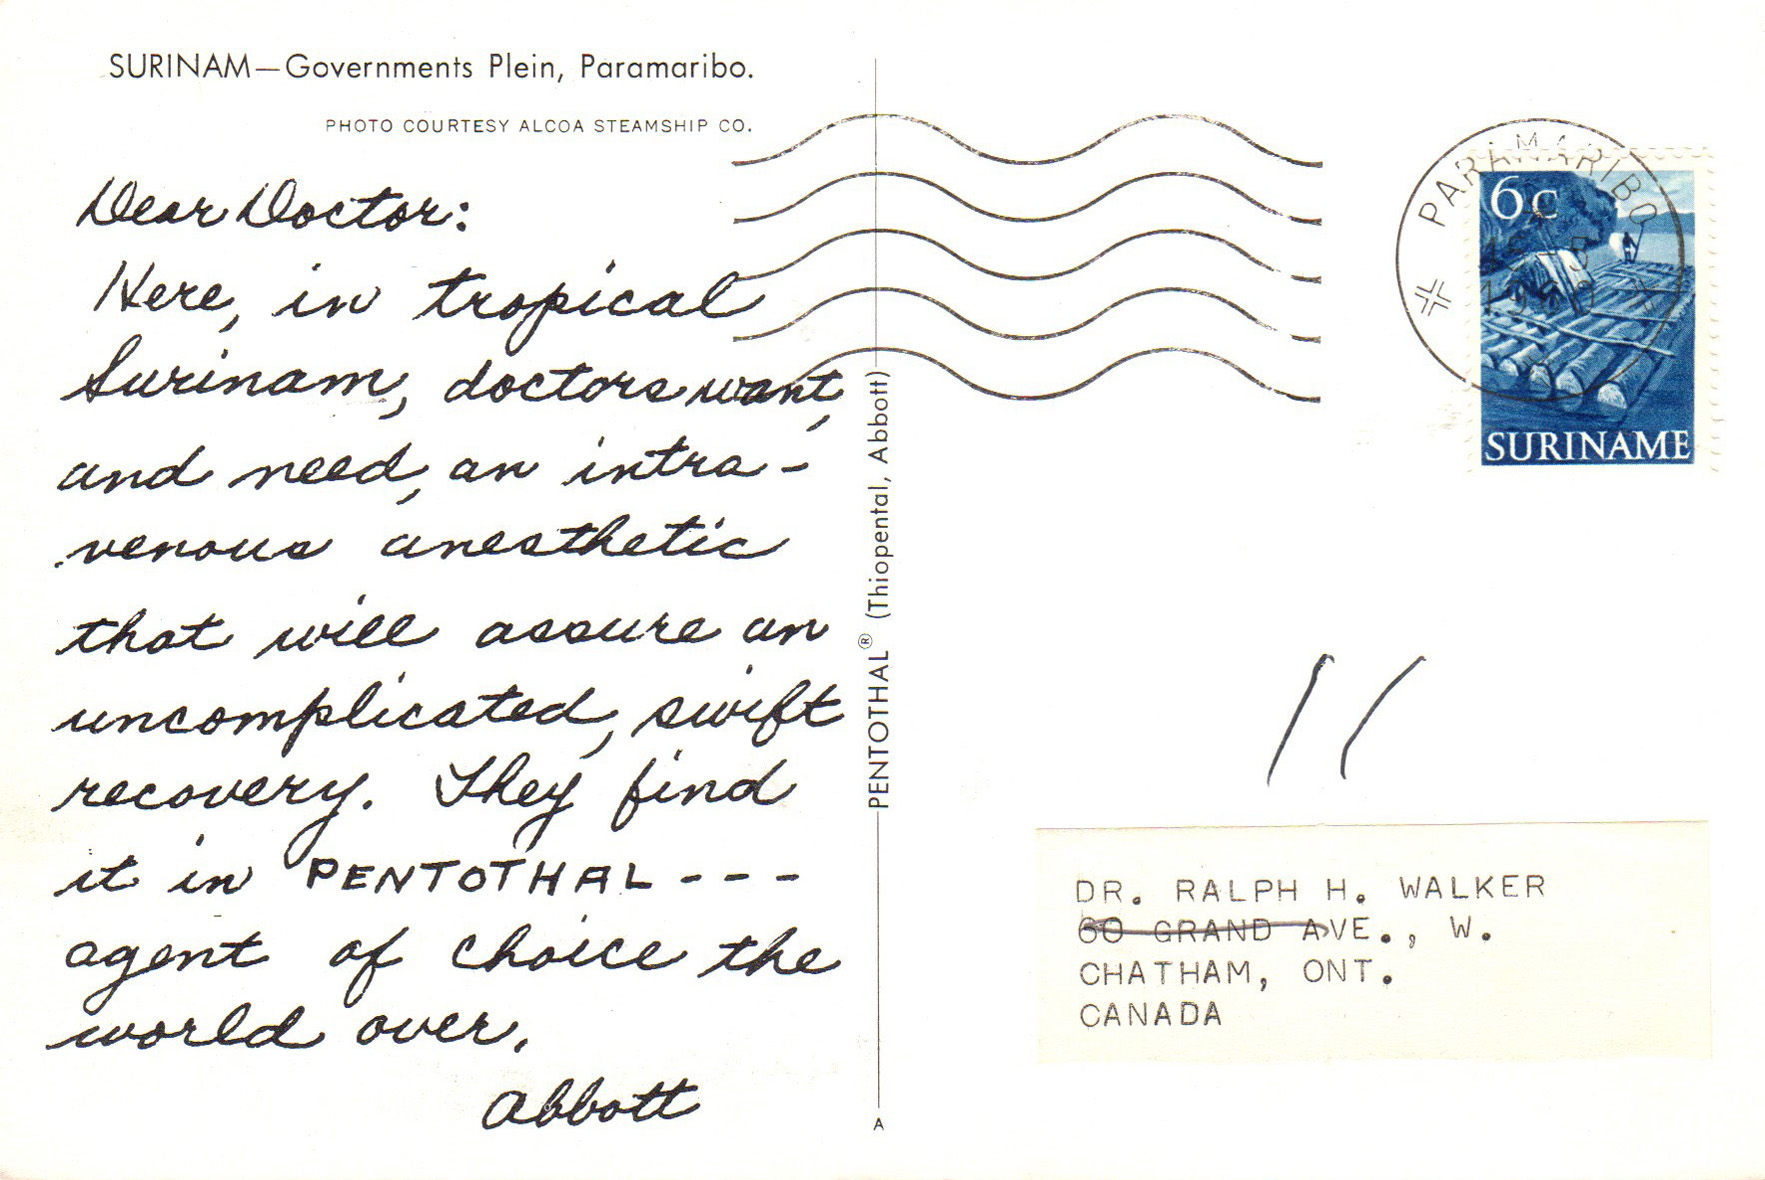 SURINAM—Governments Plein, Paramaribo.
PHOTO COURTESY ALCOA STEAMSHIP CO.
Dear Doctor:
Here, in tropical
Surinam, doctors want,
and need, an intra-
venous anesthetic
that will assure an
uncomplicated, swift
recovery. They find
it in PENTOTHAL ---
agent of choice the
world over.
Abbott
PENTOTHAL® (Thiopental, Abbott)
A
PARAMARIBO
6c
SURINAME
DR. RALPH H. WALKER
60 GRAND AVE., W.
CHATHAM, ONT.
CANADA